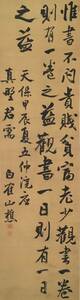 惟書不問貴賤貧富老少觀書一卷
則有一卷之益觀書一日則有一日
之益
天保甲辰夏五仲浣后
真野君需
白雀山樵